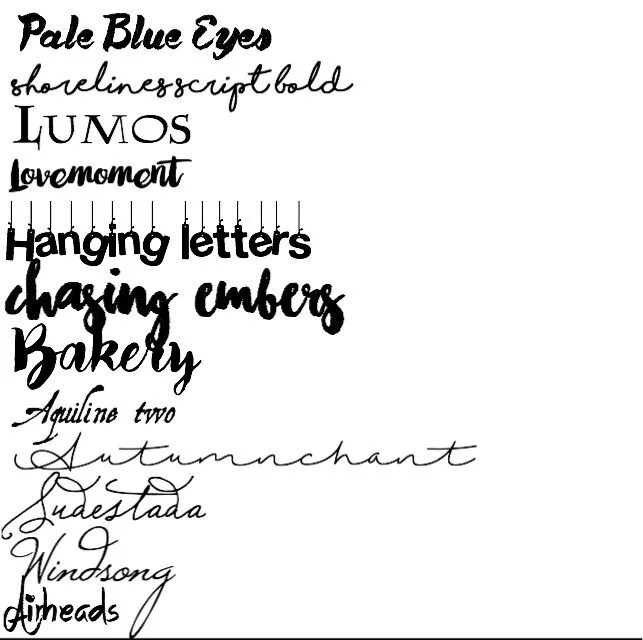 Pale Blue Eyes
shorelinesscript bold
LUMOS
Lovemoment
Hanging letters
chasing embers
Bakery
Aquiline two
Autumnchant
Sudestada
Windsong
Airheads